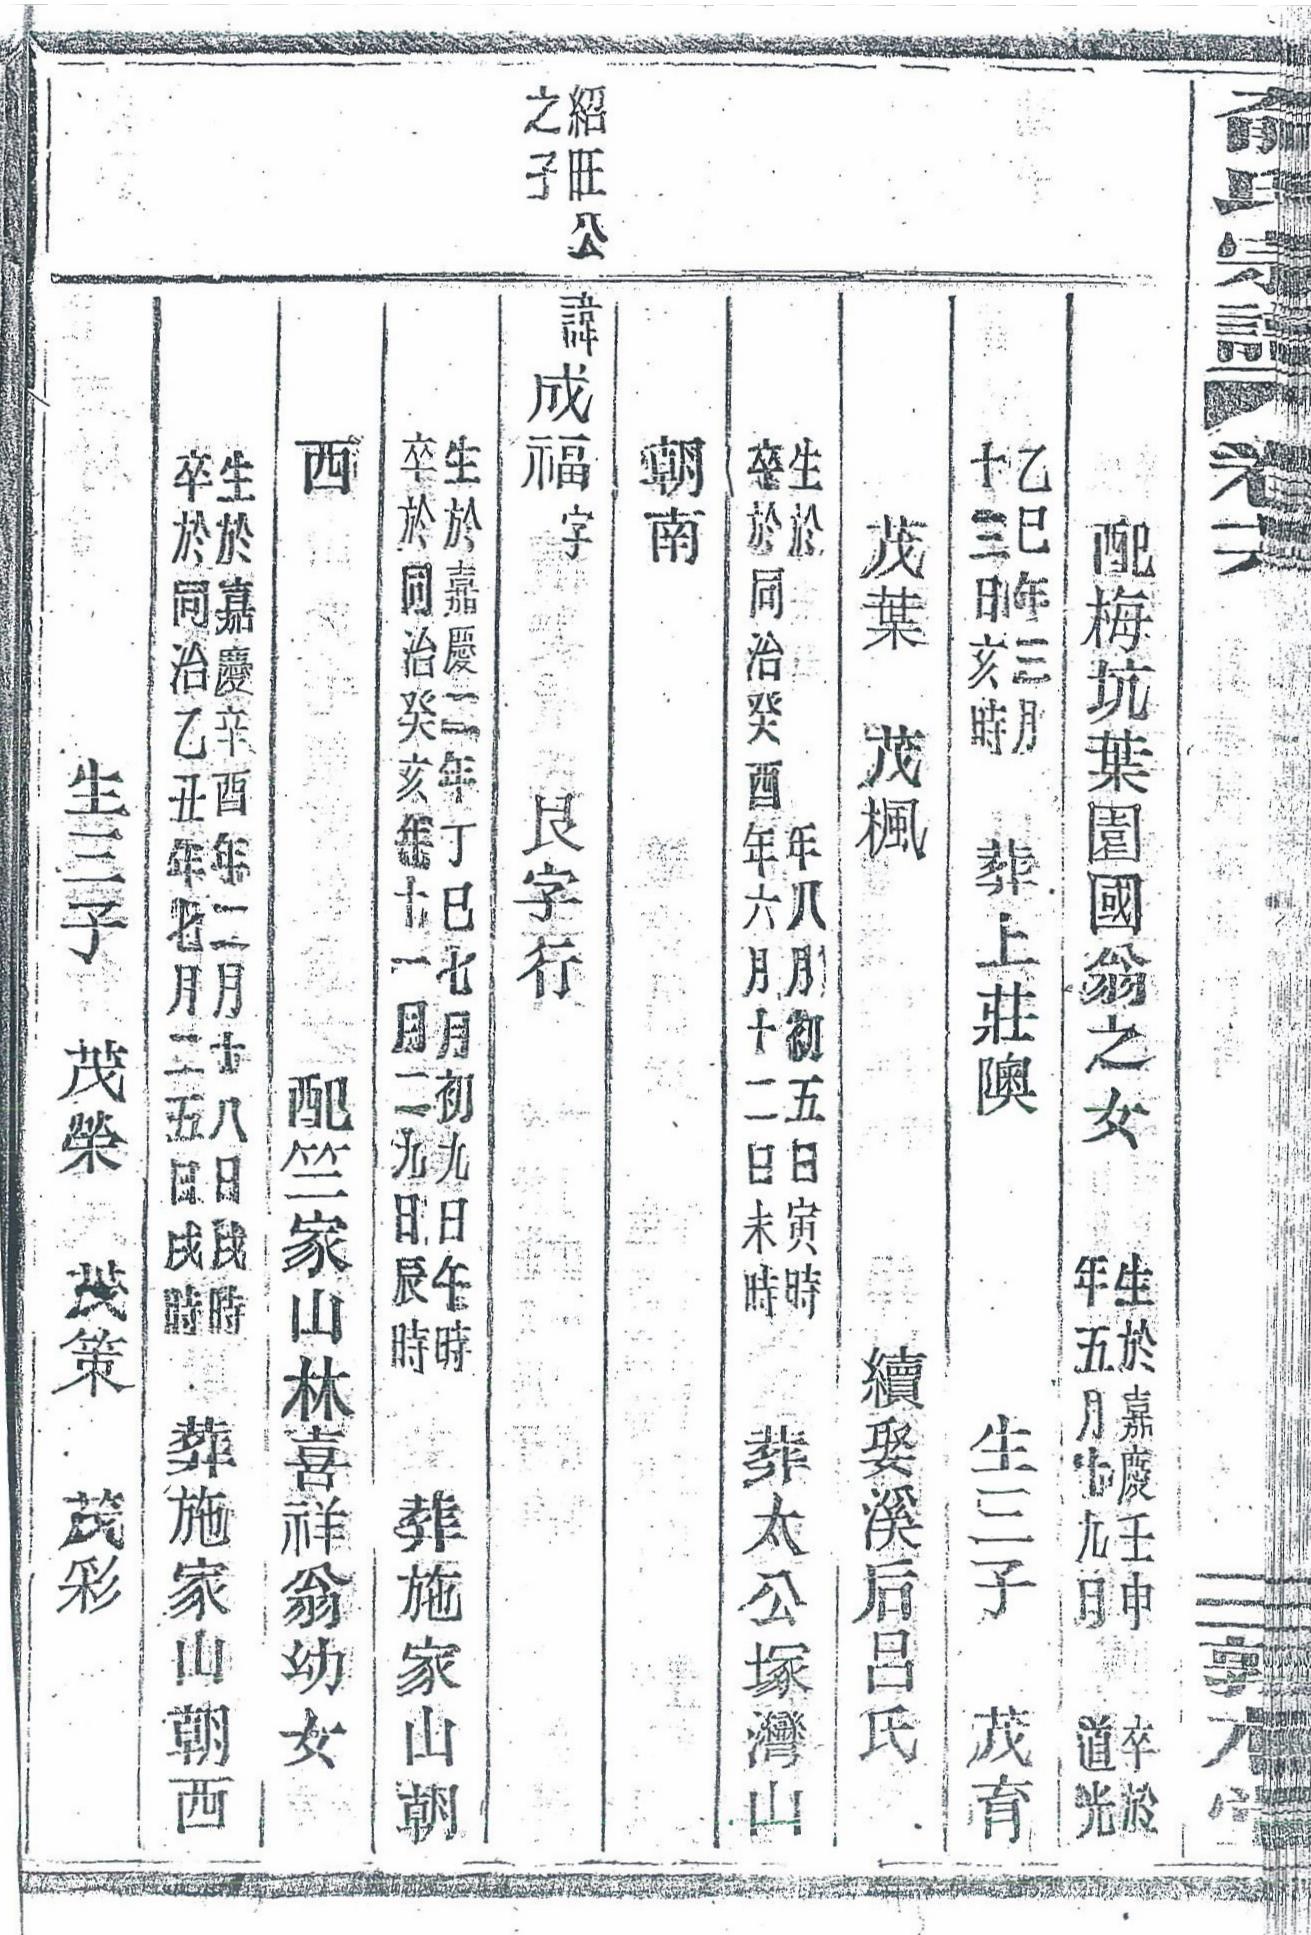 氏宗譜 卷六 三
配梅坑葉園國翁之女 生於嘉慶壬申年五月十九日 卒於道光
乙巳年三月十三日亥時 葬上莊隩 生三子 茂育
茂葉 茂楓 續娶溪后呂氏
生於 年八月初五日寅時 卒於同治癸酉年六月十二日未時 葬太公塚灣山
朝南
紹旺公之子 諱成福字 艮字行
生於嘉慶二年丁巳七月初九日午時 卒於同治癸亥年十一月二九日辰時 葬施家山朝
西 配竺家山林喜祥翁幼女
生於嘉慶辛酉年二月十八日戌時 卒於同治乙丑年七月二五日戌時 葬施家山朝西
生三子 茂榮 茂策 茂彩